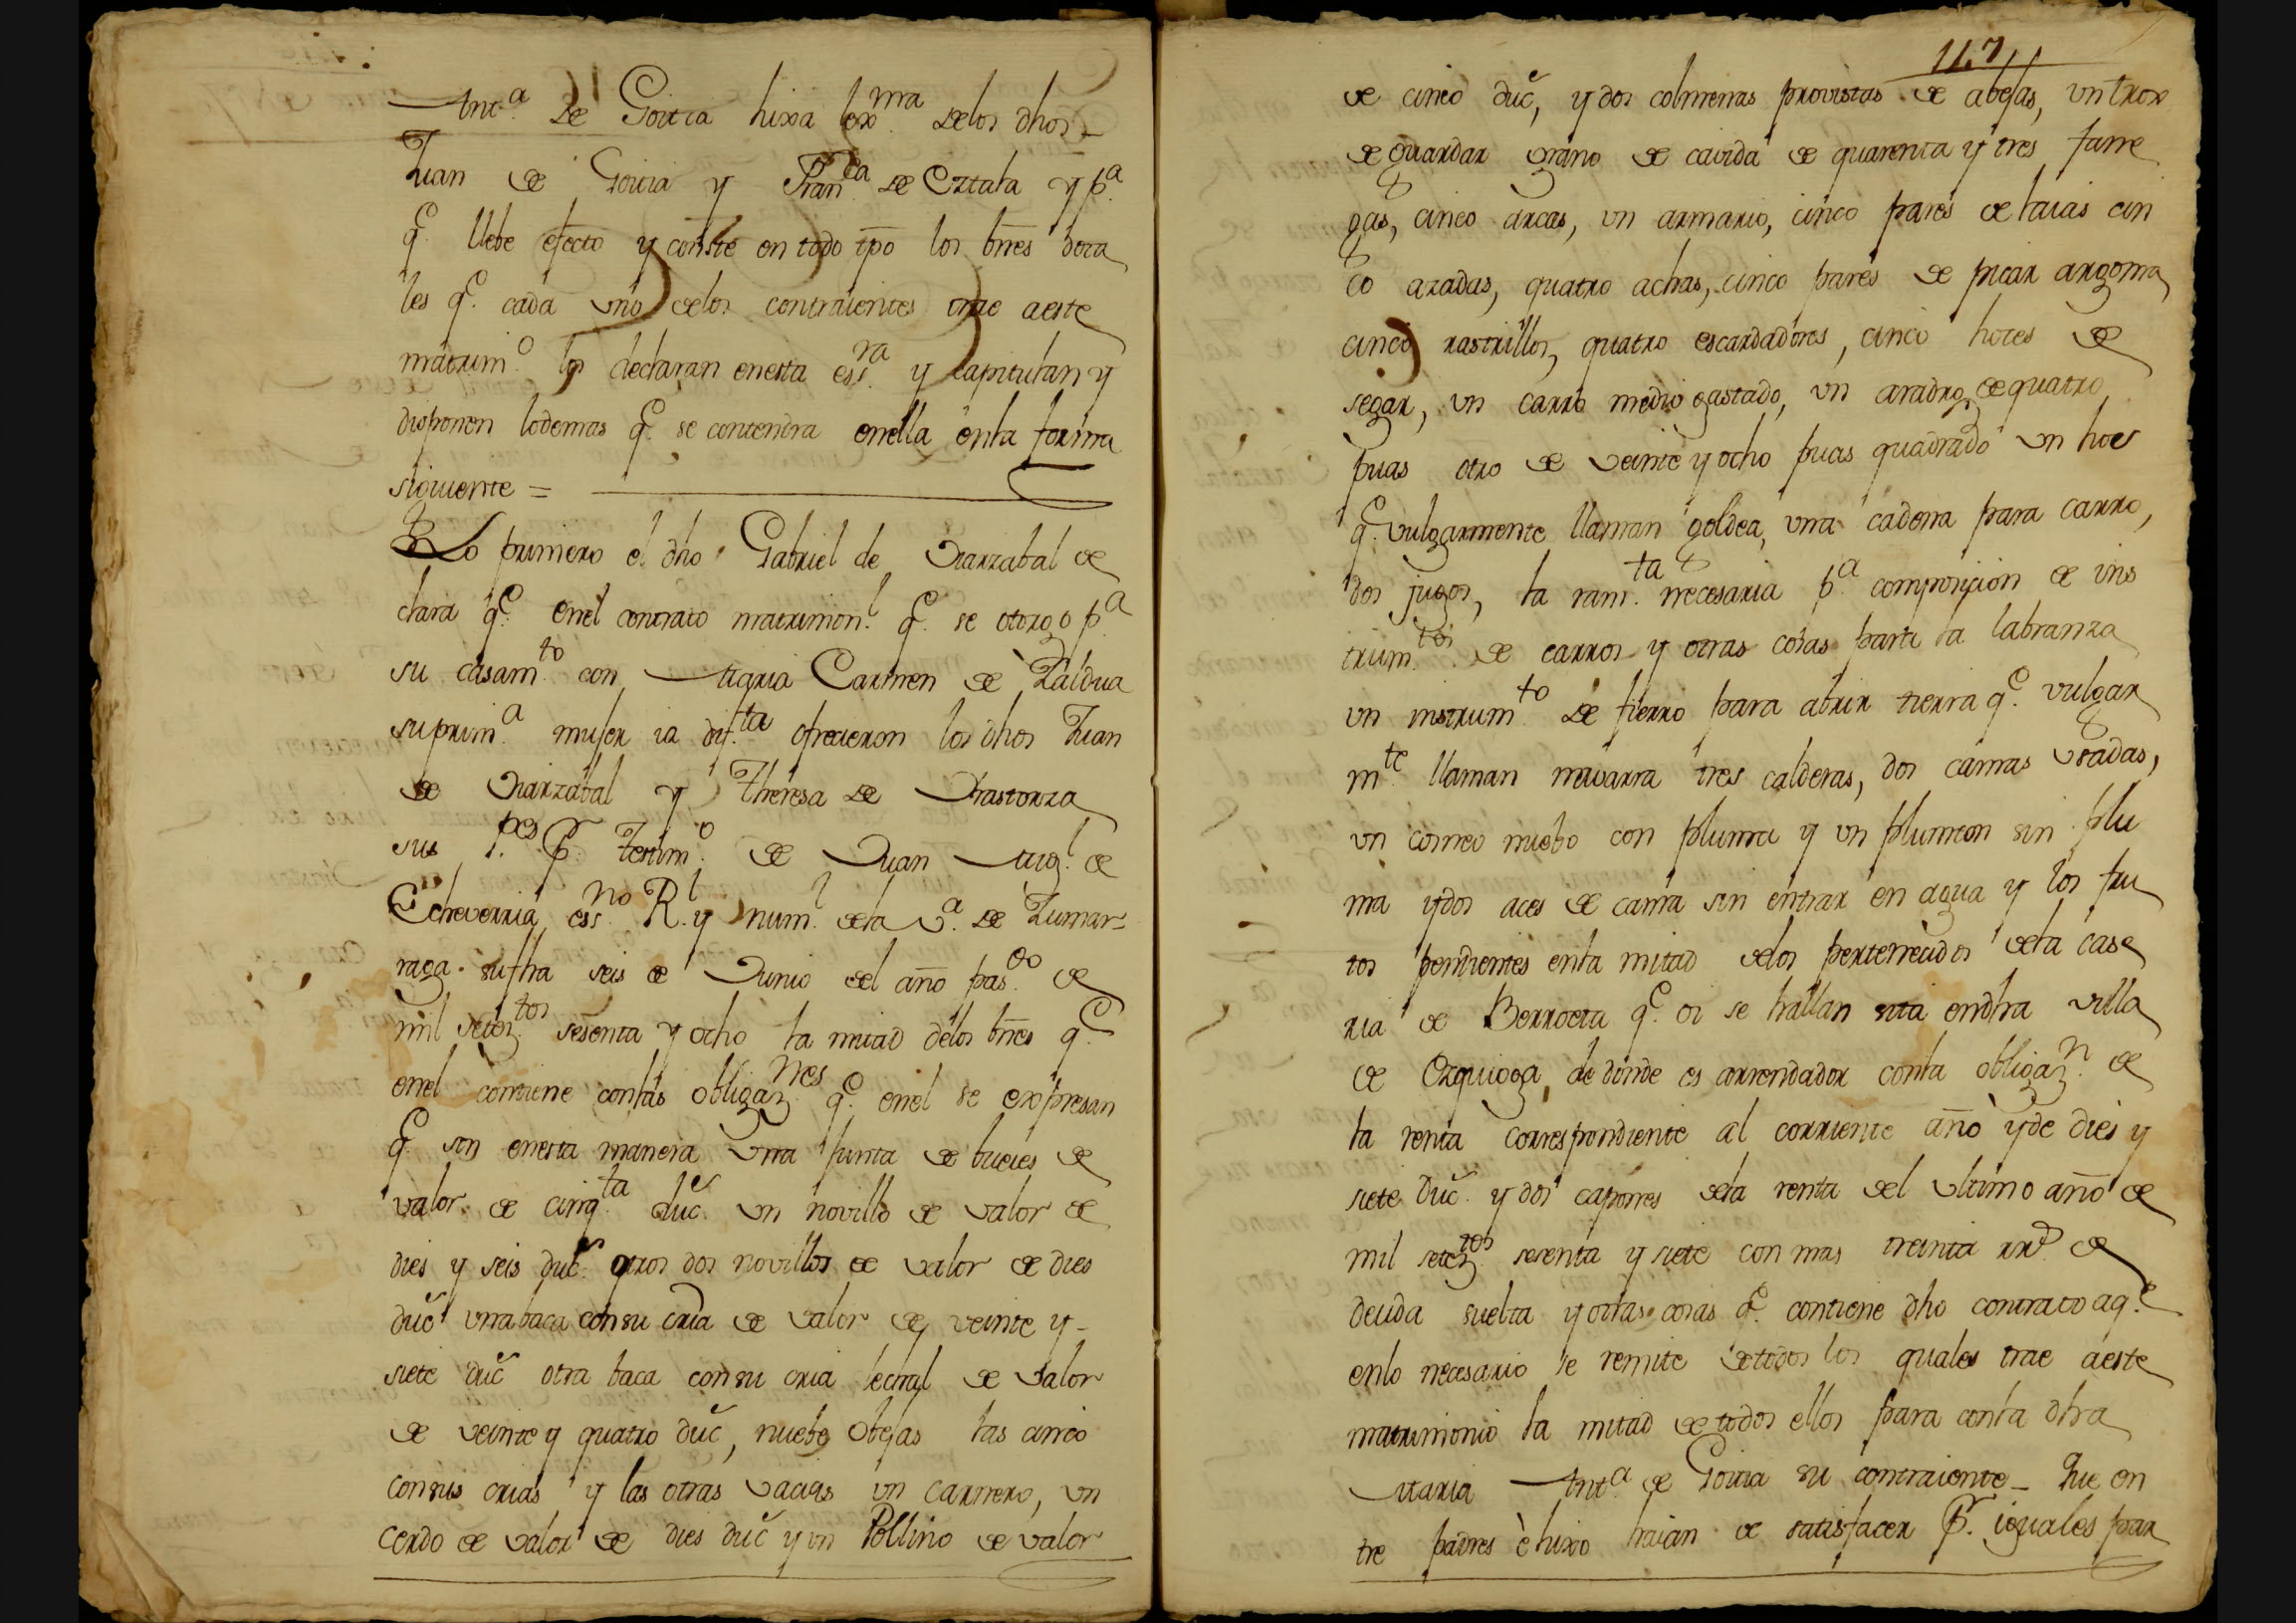 Ant.ª de Goitia hixa lex.ma delos dhos
Juan de Goicia y Fran.ca de Eztala y p.ª
q.e llebe efecto y conste en todo tpo los bnes dota
les q.e cada uno delos contraientes trae aeste
matrim.o los declaran enesta ess.ra y capitulan y
disponen lodemas q.e se contendra enella enla forma
siguiente =
Lo primero el dho Gabriel de Oiarzabal de
clara q.e enel contrato matrimon.l q.e se otorgo p.ª
su casam.to con Maria Carmen de Zaldua
suprim.ª muJer ia dif.ta ofrecieron los dhos Juan
de Oiarzabal y Theresa de Orastorza
sus P.es P. testim.o de Juan Mig.l de
Echeverria ess.no R.l y num.l dela v.ª de Zumar-
raga sufha seis de Junio del año pas.do de
mil setez.tos sesenta y ocho la mitad delos bnes q.e
enel contiene conlas obligaz.nes q.e enel se expresan
q.e son enesta manera Una Junta de bueies de
valor de cinq.ta duc. un novillo de valor de
dies y seis duc. otros dos novillos de valor de dies
duc una baca con su cria de valor de veinte y-
siete duc otra baca con su cria lechal de valor
de veinte y quatro duc, nuebe obeJas las cinco
consus crias y las otras vacias un carnero, un
cerdo de valor de dies duc y un Pollino de valor
117
de cinco duc, y dos colmenas provistas de abeJas, un trox
de guardar grano de cavida de quarenta y tres fane
gas, cinco arcas, un armario, cinco pares de laias cin
co azadas, quatro achas, cinco pares de picar argoma
cinco rastrillos, quatro escardadores, cinco hoces de
segar, un carro medio gastado, un aradro de quatro
puas otro de veinte y ocho puas quadrado un hoes
q.e vulgarmente llaman goldea, una cadena para carro,
dos jugos, la ram.ta necesaria p.ª composicion de ins
trum.tos de carros y otras cosas para la labranza
un instrum.to de fierro para abrir tierra q.e vulgar
m.te llaman navarra tres calderas, dos camas usadas,
un comeo nuebo con pluma y un plumon sin plu
ma y dos aces de cama sin entrar en agua y los fru
tos pendientes enla mitad delos pertenecidos dela case
ria de Berroeta q.e oi se hallan sita endha villa
de Ezquioga, de donde es arrendador conla obligaz.n de
la renta correspondiente al corriente año y de dies y
siete duc. y dos capones dela renta del ultimo año de
mil setez.tos sesenta y siete con mas treinta rr.s de
deuda suelta y otras cosas q.e contiene dho contrato aq.e
enlo necesario se remite de todos los quales trae aeste
matrimonio la mitad de todos ellos para conla dha
Maria Ant.ª de Goitia su contraiente_ Que en
tre padres è hixo haian de satisfacer P. iguales par